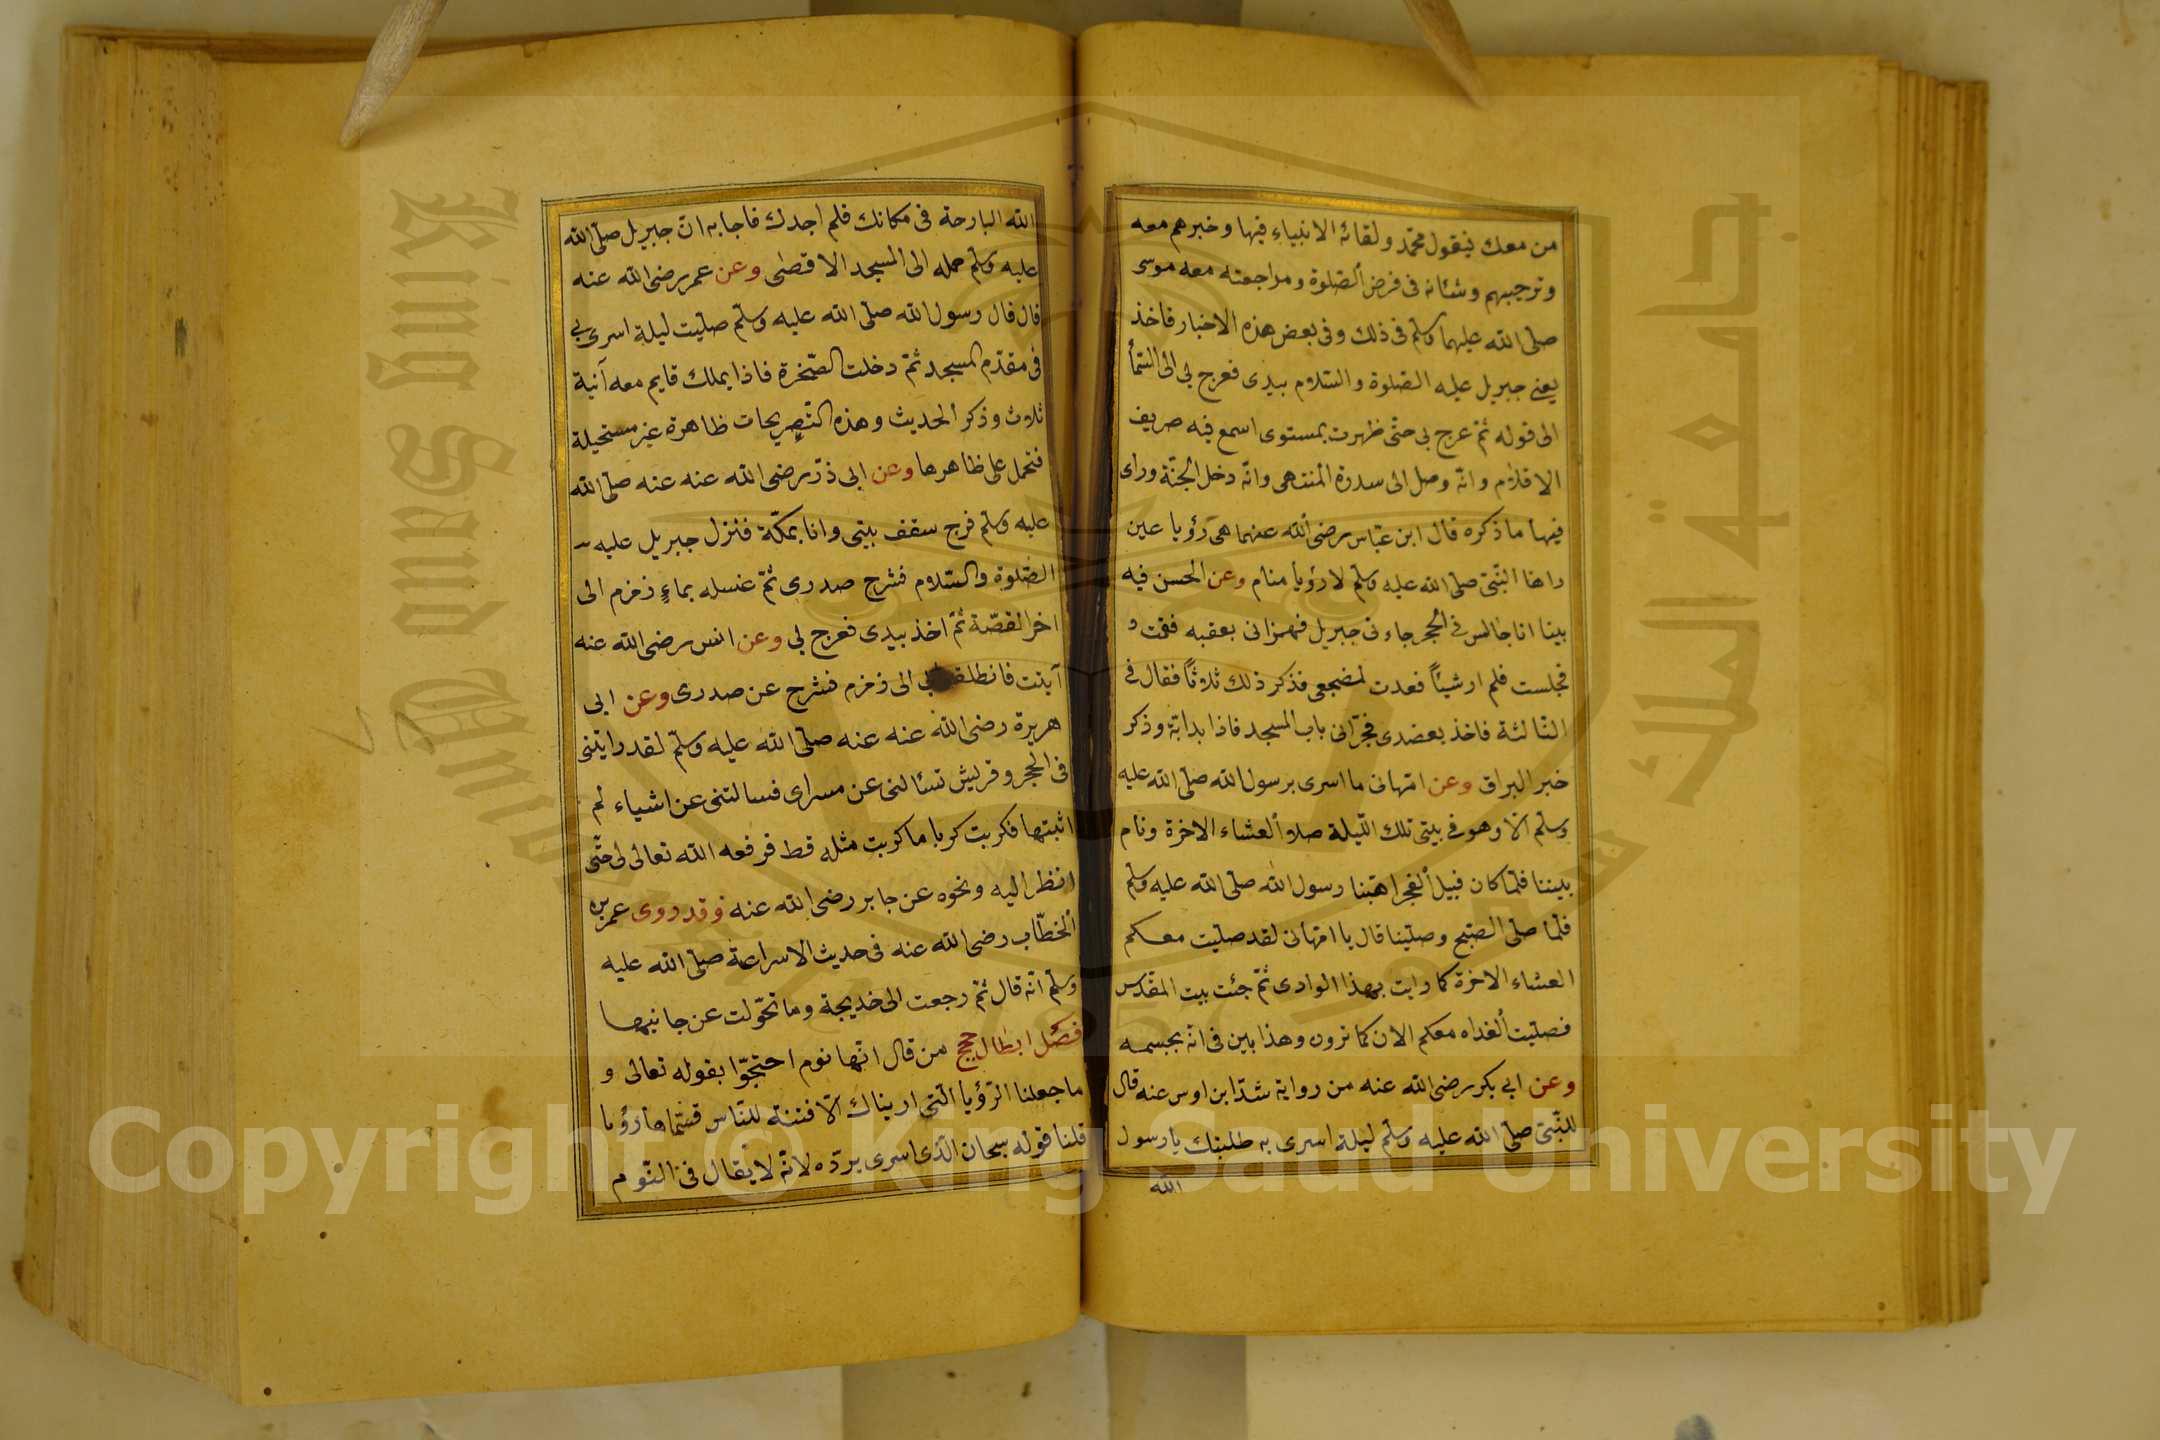 من معك فيقول محمّد ولقائه الانبياء فيها وخبرهم معه
وترحيبهم وشئانه فى فرض الصّلوة ومراجعته معه موسى
صلّى الله عليهما وسلّم فى ذلك وفى بعض هذه الاخبار فاخذ
يعنى جبريل عليه الصّلوة والسّلام بيدى فعرج بى الى السّمأ
الى قوله ثمّ عرج بى حتّى ظهرت بمستوى اسمع فيه صريف
الاقلام وانّه وصل الى سدرة المنتهى وانّه دخل الجنّة وراى
فيها ما ذكره قال ابن عبّاس رضى الله عنهما هى رؤيا عين
راها النّبىّ صلّى الله عليه وسلّم لا رؤيا منام وعن الحسن فيه
بينا انا جالس فى الحجر جاءنى جبريل فهمزانى بعقبه فقمت و
فجلست فلم ار شيئاً فعدت لمضجعى فذكر ذلك ثلاثاً فقال فى
الثالثة فاخذ بعضدى فجرّانى باب المسجد فاذا بدابّة وذكر
خبر البراق وعن امّهانى ما اسرى برسول الله صلّى الله عليه
وسلّم الّا وهو فى بيتى تلك اللّيلة صلا العشاء الاخرة ونام
بيننا فلمّا كان قبيل الفجر اهبّنا رسول الله صلّى الله عليه وسلّم
فلمّا صلّى الصّبح وصلّينا قال يا امّهانى لقد صليت معكم
العشاء الاخرة كما رايت بهذا الوادى ثمّ جئت بيت المقدس
فصليت الغداه معكم الان كما ترون وهذا بين فى انّه بجسمه
وعن ابى بكر رضى الله عنه من رواية شدّا بن اوس عنه قال
للنّبىّ صلّى الله عليه وسلّم ليلة اسرى به طلبتك يا رسول
الله
الله البارحة فى مكانك فلم اجدك فاجابه انّ جبريل صلّى الله
عليه وسلّم حمله الى المسجد الاقصى وعن عمر رضى الله عنه
قال قال رسول الله صلّى الله عليه وسلّم صلّيت ليلة اسرى بى
فى مقدّم المسجد ثمّ دخلت الصّخرة فاذا بملك قايم معه آنية
ثلاث وذكر الحديث وهذه التّصريحات ظاهرة غير مستحيلة
فتحمل على ظاهرها وعن ابى ذرّ رضى الله عنه عنه صلّى الله
عليه وسلّم فرج سقف بيتى وانا بمكّة فنزل جبريل عليه
الصّلوة والسّلام فشرح صدرى ثمّ غسله بماءٍ زمزم الى
اخر القصّة ثمّ اخذ بيدى فعرج بى وعن انس رضى الله عنه
آيتت فانطلقو بى الى زمزم فشرح عن صدرى وعن ابى
هريرة رضى الله عنه عنه صلّى الله عليه وسلّم لقد رايتنى
فى الحجر وقريش تسئالنى عن مسراى فسالتنى عن اشياء لم
اثبتها فكربت كربا ما كربت مثله قط فرفعه الله تعالى لى حتّى
انظر اليه ونحوه عن جابر رضى الله عنه وقد روى عمر بن
الخطّاب رضى الله عنه فى حديث الاسراعة صلّى الله عليه
وسلّم انّه قال ثمّ رجعت الى خديجة وما تحوّلت عن جانبها
فصل ابطال حجج من قال انّها نوم احتجّوا بقوله تعالى و
ما جعلنا الرّؤيا الّتى اريناك الّا فتنة للنّاس فسمّاها رؤيا
قلنا قوله سبحان الّذى اسرى يردّه لانّه لا يقال فى النّوم
King Saud University
جامعة الملك سعود
Copyright © King Saud University